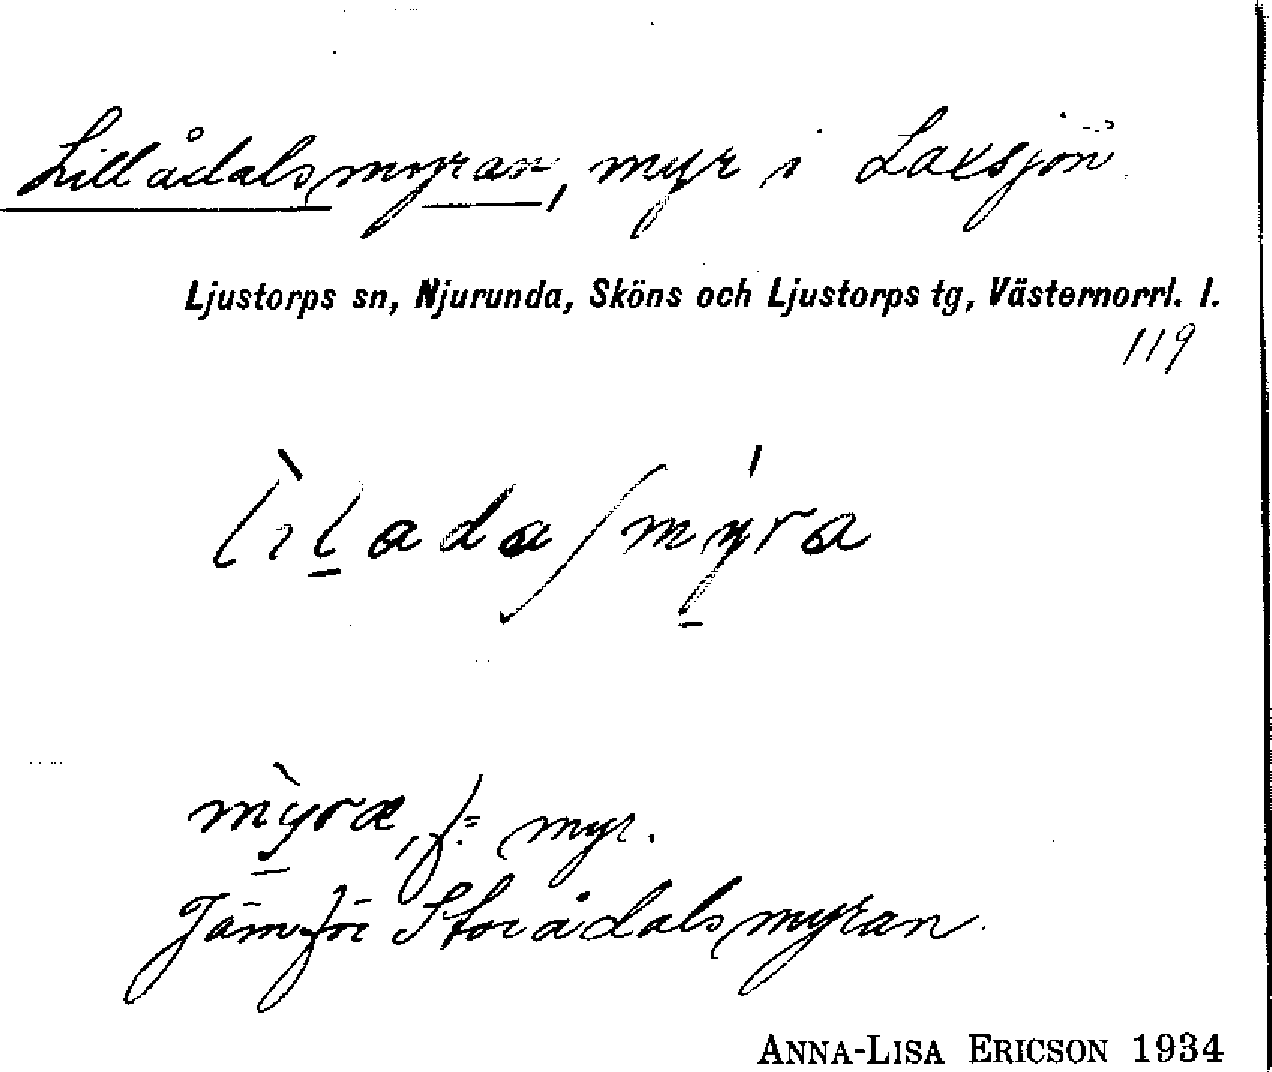 Lillådalsmyran, myr i Laxsjön
Ljustorps sn, Njurunda, Sköns och Ljustorps tg, Västernorrl. l.
119
lìlada/mýra
mỳræ, f = myr.
Jämför Storådalsmyran.
ANNA-LISA ERICSON 1934